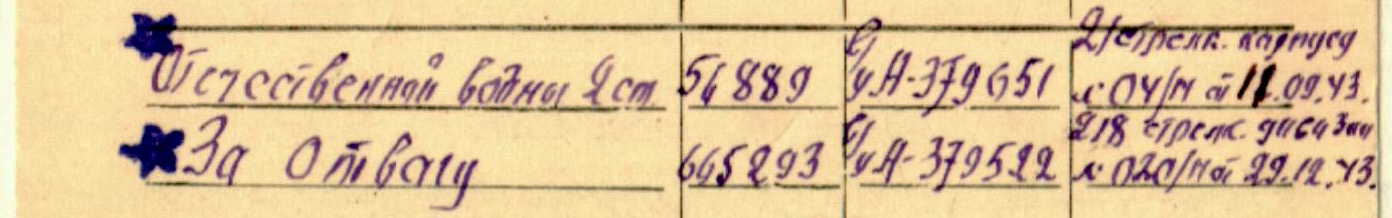 21 стрелк. корпуса
Отечественной войны 2 ст. 56889 б/у А-379651 № 04/Н от 11.09.43.
218 стрелк. дивизии
За Отвагу 665293 б/у А-379522 № 020/Н от 29.12.43.